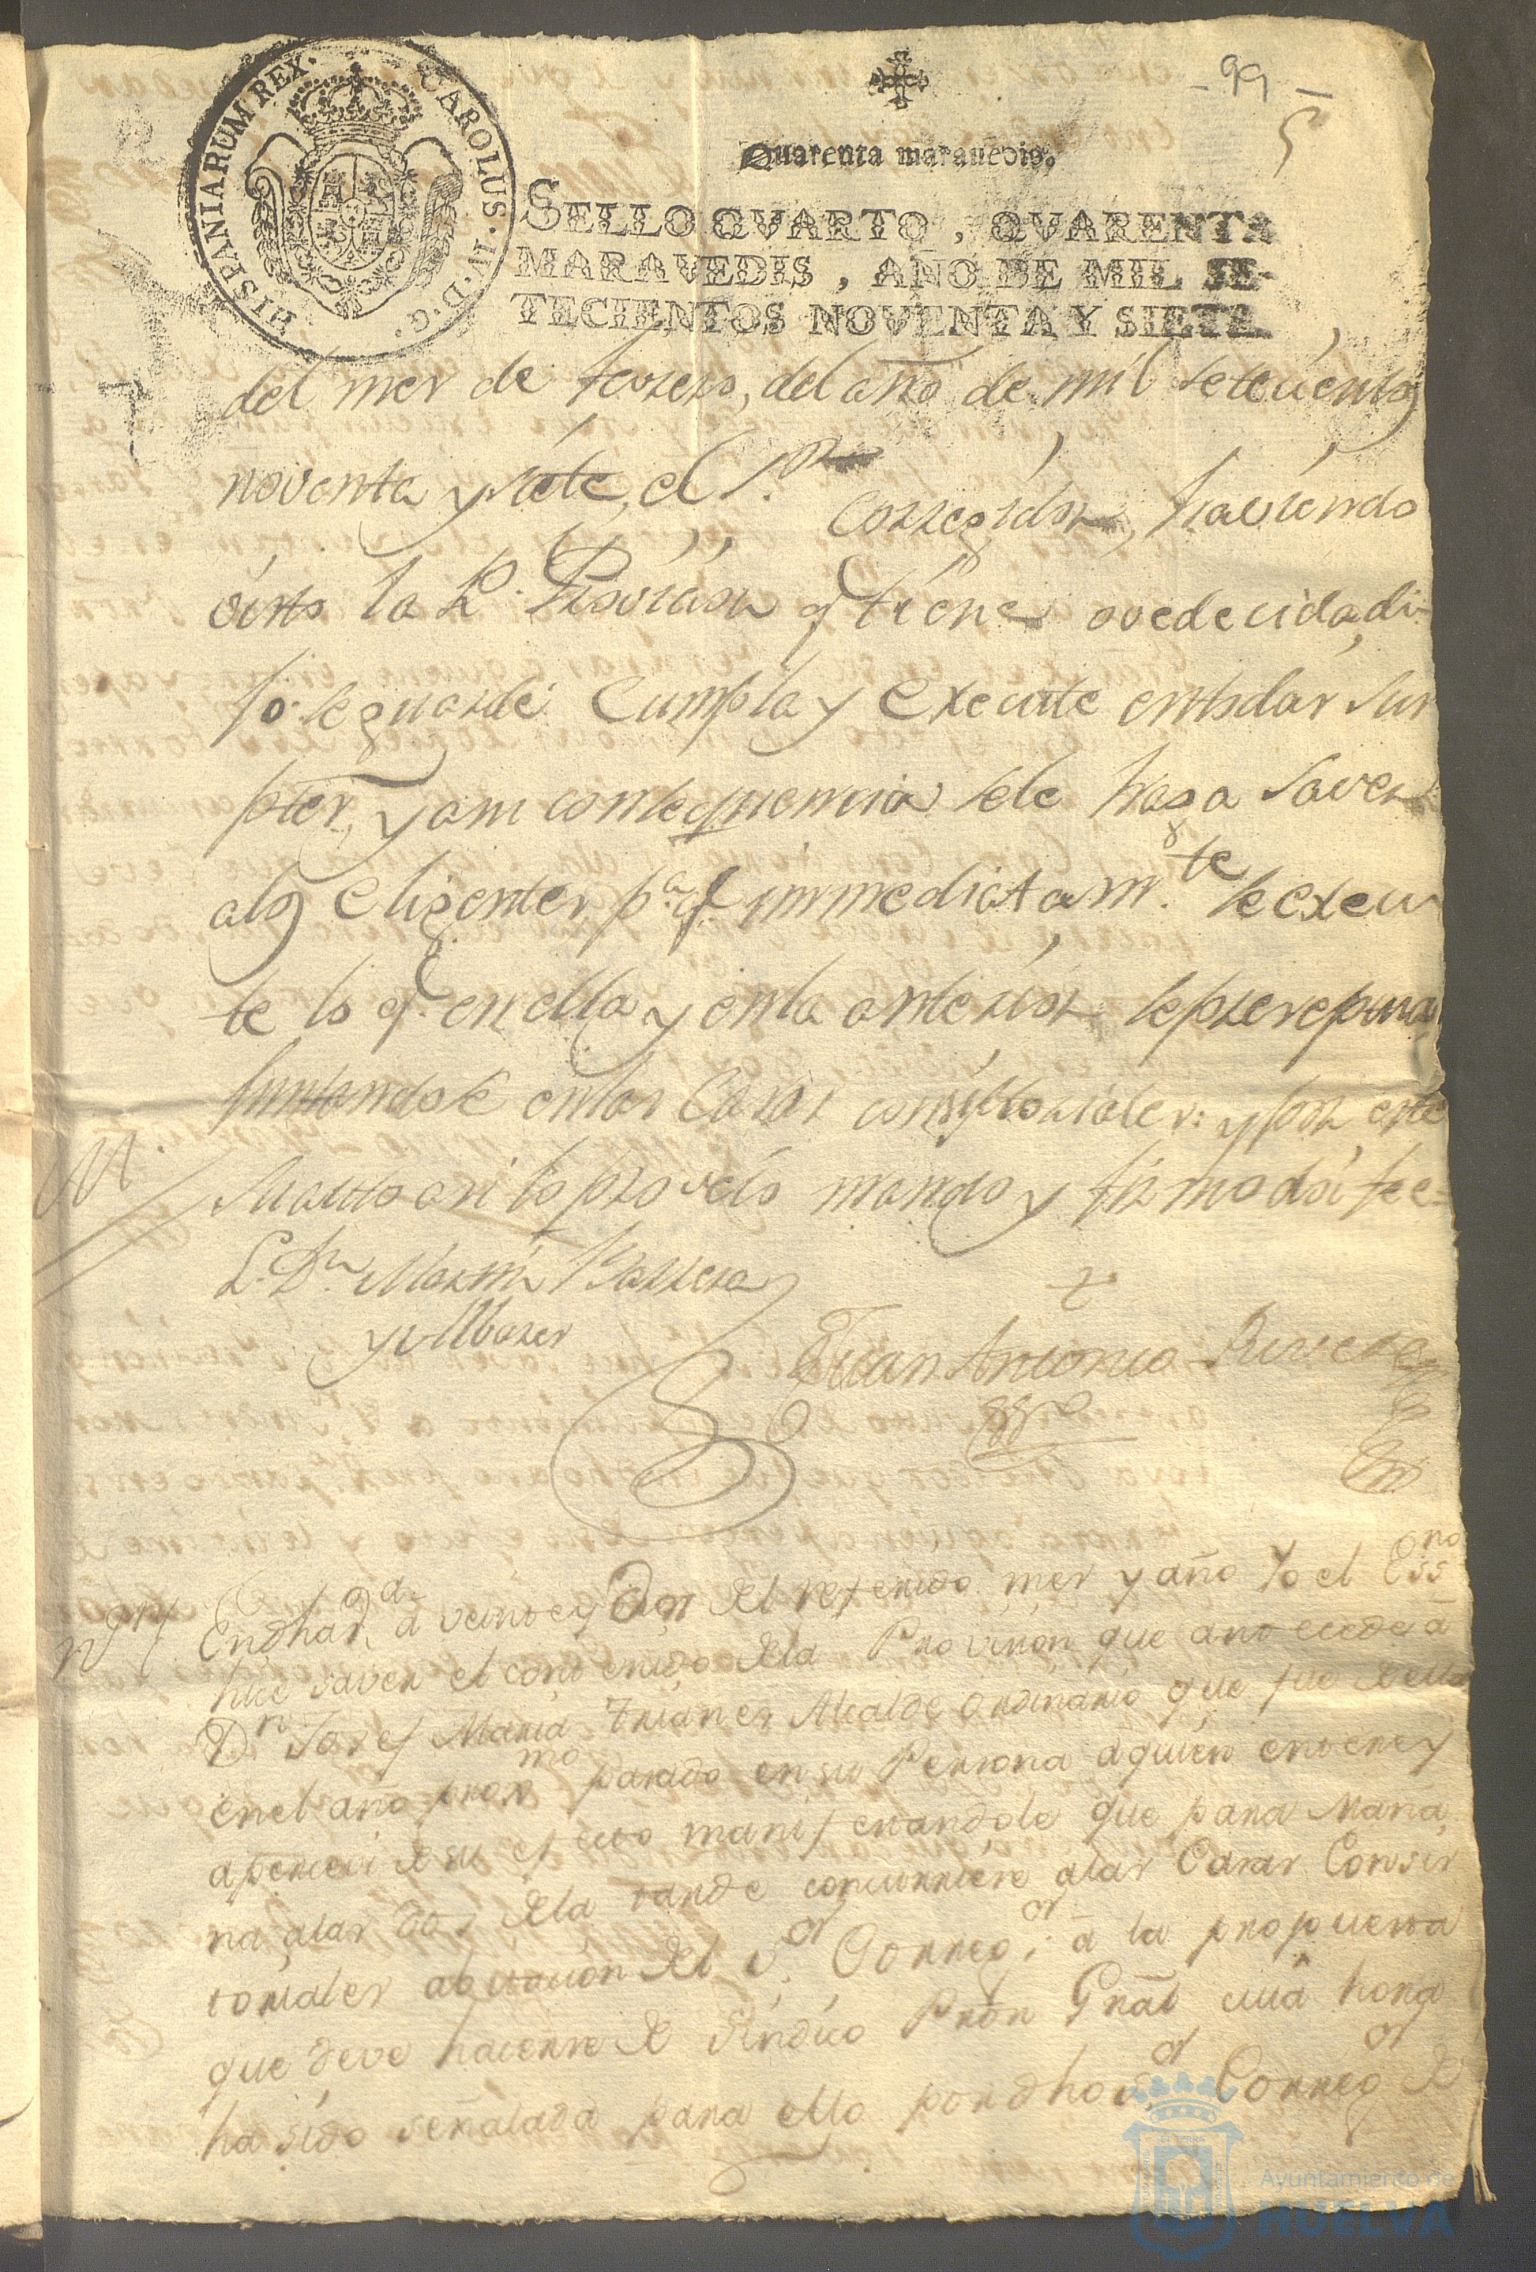 - 99 -
5
HISPANIARUM REX. CAROLUS. IV. D. G.
Quarenta maravedis.
SELLO QVARTO, QVARENTA
MARAVEDIS, AÑO DE MIL SE-
TECIENTOS NOVENTA Y SIETE.
del mes de febrero, del año de mil setecientos
noventa y siete, el S.or
Corregidor, haviendo
visto la R. Provision q tiene ovedecida, di-
jo se guarde Cumpla y Execute entodas sus
ptes, y asu consequencia sele haga saver
alos Eligentes pa. q immediatam.te se execu
te lo q. en ella y enla anterior se
Juntandose enlas Casas consistoriales: y por este
su auto asi lo proveió mando y firmo doi fee=
L. Dn Martin Barrera
Juan Antonio Rivera
En dha a veinte y dos del referido mes y año Yo el Essno
hice saver el contenido dela Provision que antecede a
Dn Josef Maria Trianes Alcalde ordinario que fue de ella
en el año proxmo pasado en su Persona a quien entere y
aperceví de su efecto manifestandole que para maña
na alas dos dela tarde concurriere alas Casas Consis
toriales abitacion del S.or Correg.or a la propuesta
que deve hacerse de Sindico Pror Gnal cuia hora
ha sido señalada para ello por dho S.or Correg.or de
Ayuntamiento de
HUELVA